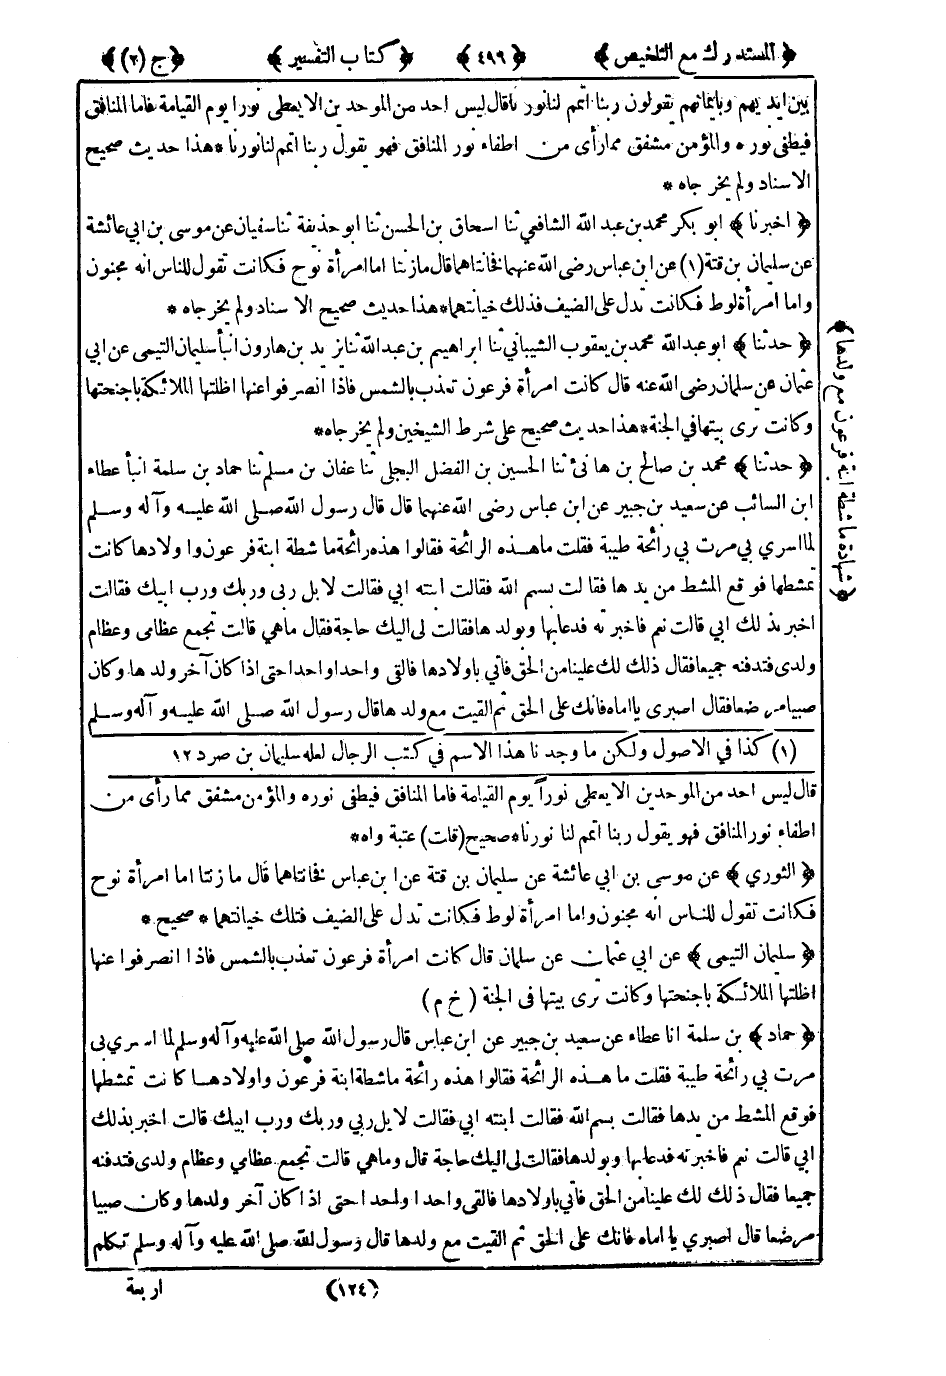 ﴿ المستدرك مع التلخيص ﴾ ﴿ ٤٩٦ ﴾ ﴿ كتاب التفسير ﴾ ﴿ ج (٢) ﴾
بين ايديهم وبايمانهم يقولون ربنا اتمم لنا نورنا قال ليس احد من الموحدين الا يعطى نورا يوم القيامة فاما المنافق
فيطفى نوره والمؤمن مشفق مما رأى من اطفاء نور المنافق فهو يقول ربنا اتمم لنا نورنا * هذا حديث صحيح
الاسناد ولم يخرجاه *
﴿ اخبرنا ﴾ ابو بكر محمد بن عبد الله الشافعي ثنا اسحاق بن الحسن ثنا ابو حذيفة ثنا سفيان عن موسى بن ابي عائشة
عن سليمان بن قتة (١) عن ابن عباس رضى الله عنهما فخانتاهما قال ما زنتا اما امرأة نوح فكانت تقول للناس انه مجنون
واما امرأة لوط فكانت تدل على الضيف فذلك خيانتهما * هذا حديث صحيح الاسناد ولم يخرجاه *
﴿ حدثنا ﴾ ابو عبد الله محمد بن يعقوب الشيباني ثنا ابراهيم بن عبد الله ثنا يزيد بن هارون انبأ سليمان التيمى عن ابي
عثمان عن سلمان رضى الله عنه قال كانت امرأة فرعون تعذب بالشمس فاذا انصرفوا عنها اظلتها الملائكة باجنحتها
وكانت ترى بيتها في الجنة * هذا حديث صحيح على شرط الشيخين ولم يخرجاه *
﴿ حدثنا ﴾ محمد بن صالح بن هانئ ثنا الحسين بن الفضل البجلى ثنا عفان بن مسلم ثنا حماد بن سلمة انبأ عطاء
ابن السائب عن سعيد بن جبير عن ابن عباس رضى الله عنهما قال قال رسول الله صلى الله عليه وآله وسلم
لما اسري بي مرت بي رائحة طيبة فقلت ما هذه الرائحة فقالوا هذه رائحة ماشطة ابنة فرعون واولادها كانت
تمشطها فوقع المشط من يدها فقالت بسم الله فقالت ابنته ابي فقالت لا بل ربى وربك ورب ابيك فقالت
اخبر بذلك ابي قالت نعم فاخبرته فدعا بها وبولدها فقالت لى اليك حاجة فقال ما هي قالت تجمع عظامى وعظام
ولدى فتدفنه جميعا فقال ذلك لك علينا من الحق فأتي باولادها فالقى واحدا واحدا حتى اذا كان آخر ولدها وكان
صبيا مرضعا فقال اصبرى يا اماه فانك على الحق ثم القيت مع ولدها قال رسول الله صلى الله عليه وآله وسلم
﴿ شهادة ماشطة ابنة فرعون مع ولدها ﴾
(١) كذا في الاصول ولكن ما وجدنا هذا الاسم في كتب الرجال لعله سليمان بن صرد ١٢
قال ليس احد من الموحدين الا يعطى نوراً يوم القيامة فاما المنافق فيطفى نوره والمؤمن مشفق مما رأى من
اطفاء نور المنافق فهو يقول ربنا اتمم لنا نورنا * صحيح (قلت) عتبة واه *
﴿ الثوري ﴾ عن موسى بن ابي عائشة عن سليمان بن قتة عن ابن عباس فخانتاهما قال ما زنتا اما امرأة نوح
فكانت تقول للناس انه مجنون واما امرأة لوط فكانت تدل على الضيف فتلك خيانتهما * صحيح *
﴿ سليمان التيمى ﴾ عن ابي عثمان عن سلمان قال كانت امرأة فرعون تعذب بالشمس فاذا انصرفوا عنها
اظلتها الملائكة باجنحتها وكانت ترى بيتها فى الجنة (خ م)
﴿ حماد ﴾ بن سلمة انا عطاء عن سعيد بن جبير عن ابن عباس قال رسول الله صلى الله عليه وآله وسلم لما اسري بى
مرت بي رائحة طيبة فقلت ما هذه الرائحة فقالوا هذه رائحة ماشطة ابنة فرعون واولادها كانت تمشطها
فوقع المشط من يدها فقالت بسم الله فقالت ابنته ابي فقالت لا بل ربي وربك ورب ابيك قالت اخبر بذلك
ابي قالت نعم فاخبرته فدعا بها وبولدها فقالت لى اليك حاجة قال وما هي قالت تجمع عظامي وعظام ولدى فتدفنه
جميعا فقال ذلك لك علينا من الحق فأتي باولادها فالقى واحدا واحدا حتى اذا كان آخر ولدها وكان صبيا
مرضعا قال اصبري يا اماه فانك على الحق ثم القيت مع ولدها قال رسول الله صلى الله عليه وآله وسلم تكلم
(١٢٤) اربعة